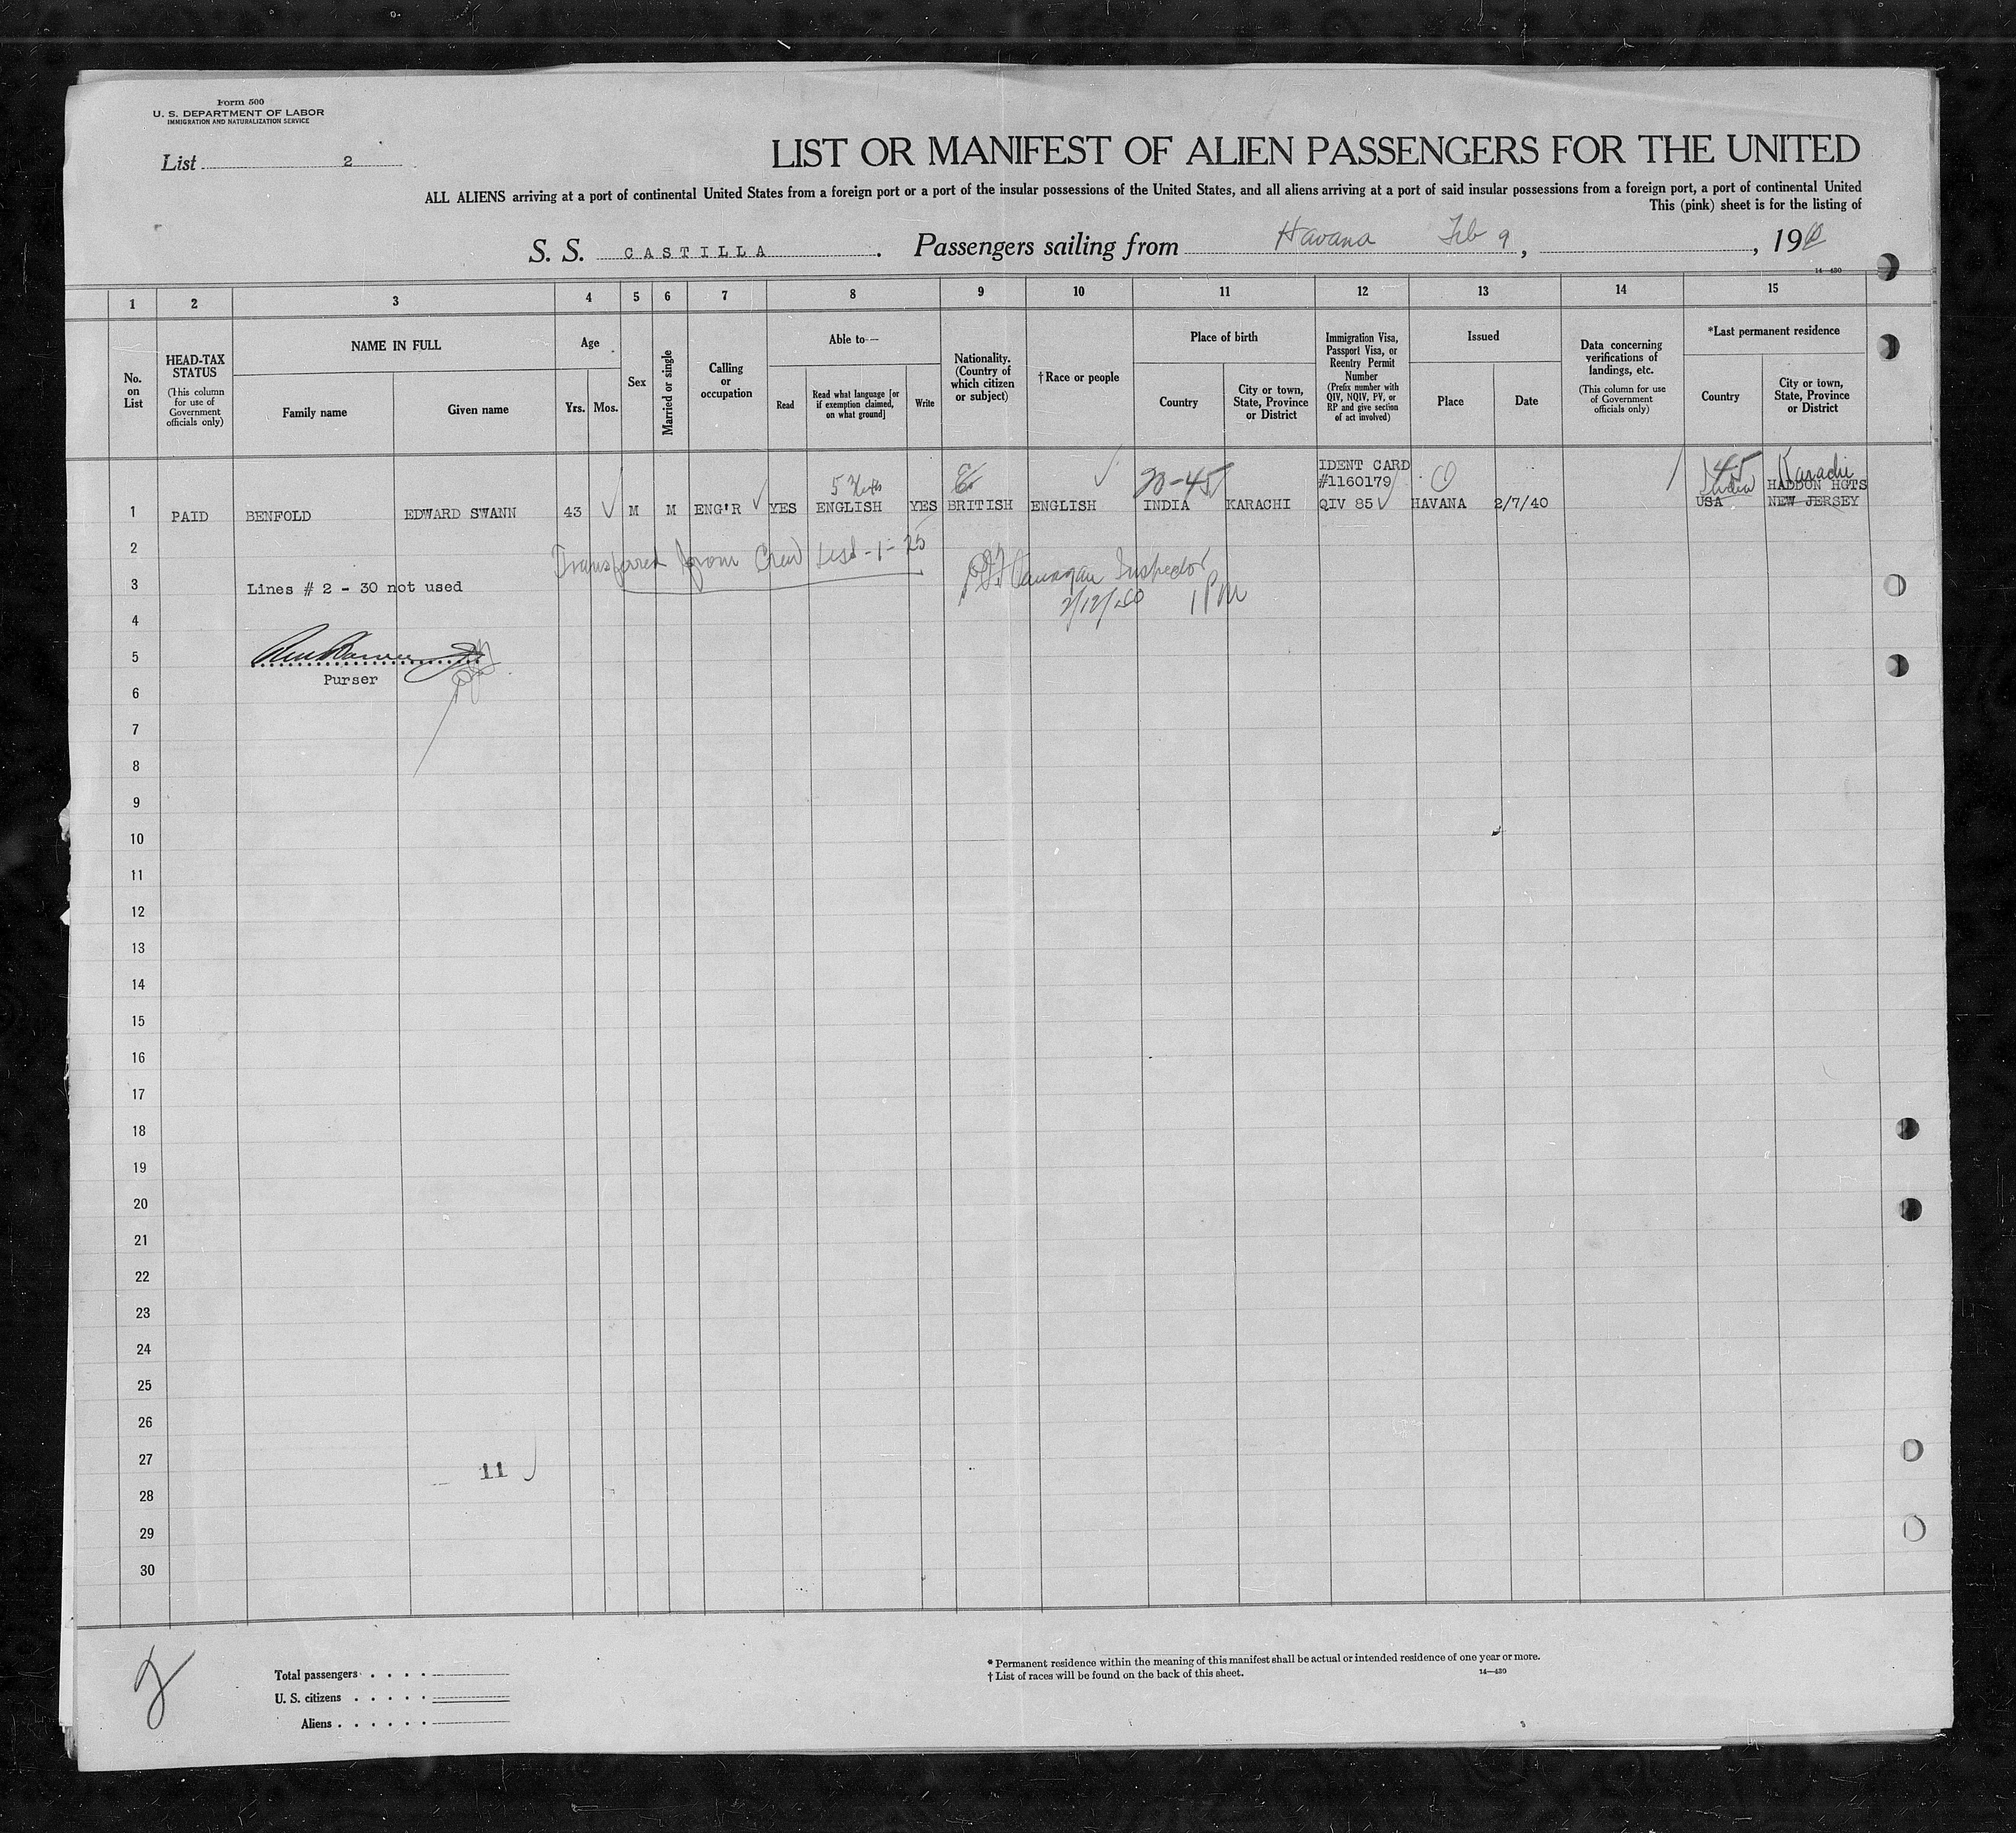 Form 500
U. S. DEPARTMENT OF LABOR
IMMIGRATION AND NATURALIZATION SERVICE
List 2
LIST OR MANIFEST OF ALIEN PASSENGERS FOR THE UNITED
ALL ALIENS arriving at a port of continental United States from a foreign port or a port of the insular possessions of the United States, and all aliens arriving at a port of said insular possessions from a foreign port, a port of continental United
This (pink) sheet is for the listing of
S. S. CASTILLA. Passengers sailing from Havana Feb 9, , 1940
14—430
1 2 3 4 5 6 7 8 9 10 11 12 13 14 15
No. on List
HEAD-TAX STATUS
(This column for use of Government officials only)
NAME IN FULL
Family name
Given name
Age
Yrs.
Mos.
Sex
Married or single
Calling or occupation
Able to—
Read
Read what language [or if exemption claimed, on what ground]
Write
Nationality. (Country of which citizen or subject)
†Race or people
Place of birth
Country
City or town, State, Province or District
Immigration Visa, Passport Visa, or Reentry Permit Number
(Prefix number with QIV, NQIV, PV, or RP and give section of act involved)
Issued
Place
Date
Data concerning verifications of landings, etc.
(This column for use of Government officials only)
*Last permanent residence
Country
City or town, State, Province or District
20-45
45
India
Karachi
IDENT CARD
#1160179
HADDON HGTS
1 PAID BENFOLD EDWARD SWANN 43 M M ENG'R YES ENGLISH YES BRITISH ENGLISH INDIA KARACHI QIV 85 HAVANA 2/7/40 USA NEW JERSEY
2
Transferred from Crew List-1-25
3 Lines # 2 - 30 not used
Inspector
2/12/40 1 PM
4
5
Purser
6
7
8
9
10
11
12
13
14
15
16
17
18
19
20
21
22
23
24
25
26
27
11
28
29
30
2
Total passengers . . . .
U. S. citizens . . . . .
Aliens . . . . . .
* Permanent residence within the meaning of this manifest shall be actual or intended residence of one year or more.
† List of races will be found on the back of this sheet.
14—430